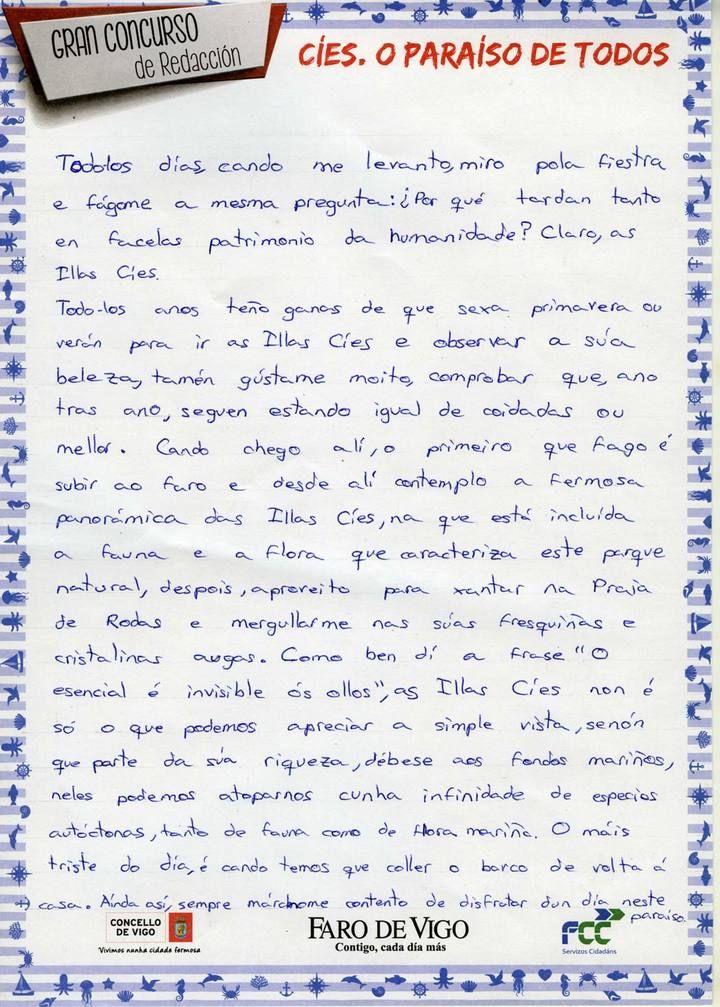 GRAN CONCURSO
de Redacción
CÍES. O PARAÍSO DE TODOS
Todolos días, cando me levanto, miro pola fiestra
e fágome a mesma pregunta: ¿Por qué tardan tanto
en facelas patrimonio da humanidade? Claro, as
Illas Cíes.
Todo-los anos teño ganas de que sexa primavera ou
verán para ir as Illas Cíes e observar a súa
beleza, tamén gústame moito, comprobar que, ano
tras ano, seguen estando igual de coidadas ou
mellor. Cando chego alí, o primeiro que fago é
subir ao faro e desde alí contemplo a fermosa
panorámica das Illas Cíes, na que está incluída
a fauna e a flora que caracteriza este parque
natural, despois, aproveito para xantar na Praia
de Rodas e mergullarme nas súas fresquiñas e
cristalinas augas. Como ben dí a frase "O
esencial é invisible ós ollos", as Illas Cíes non é
só o que podemos apreciar a simple vista, senón
que parte da súa riqueza, débese aos fondos mariños,
neles podemos atoparnos cunha infinidade de especios
autóctonas, tanto de fauna como de flora mariña. O máis
triste do día, é cando temos que coller o barco de volta á
casa. Aínda así, sempre márchome contento de disfrutar dun día neste
paraíso.
CONCELLO
DE VIGO
Vivimos nunha cidade fermosa
FARO DE VIGO
Contigo, cada día más
FCC
Servizos Cidadáns